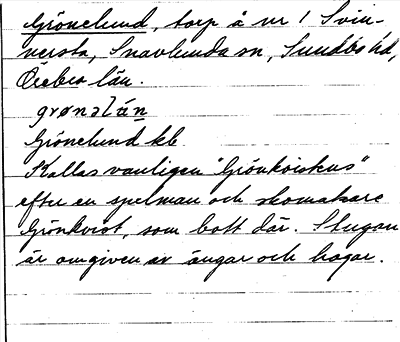 Grönelund, torp å nr 1 Svin-
nersta, Snavlunda sn, Sundbo hd,
Örebro län.
grønəlán
Grönelund kb
Kallas vanligen "Grönkvistens"
efter en spelman och skomakare
Grönkvist, som bott där. Stugan
är omgiven av ängar och hagar.